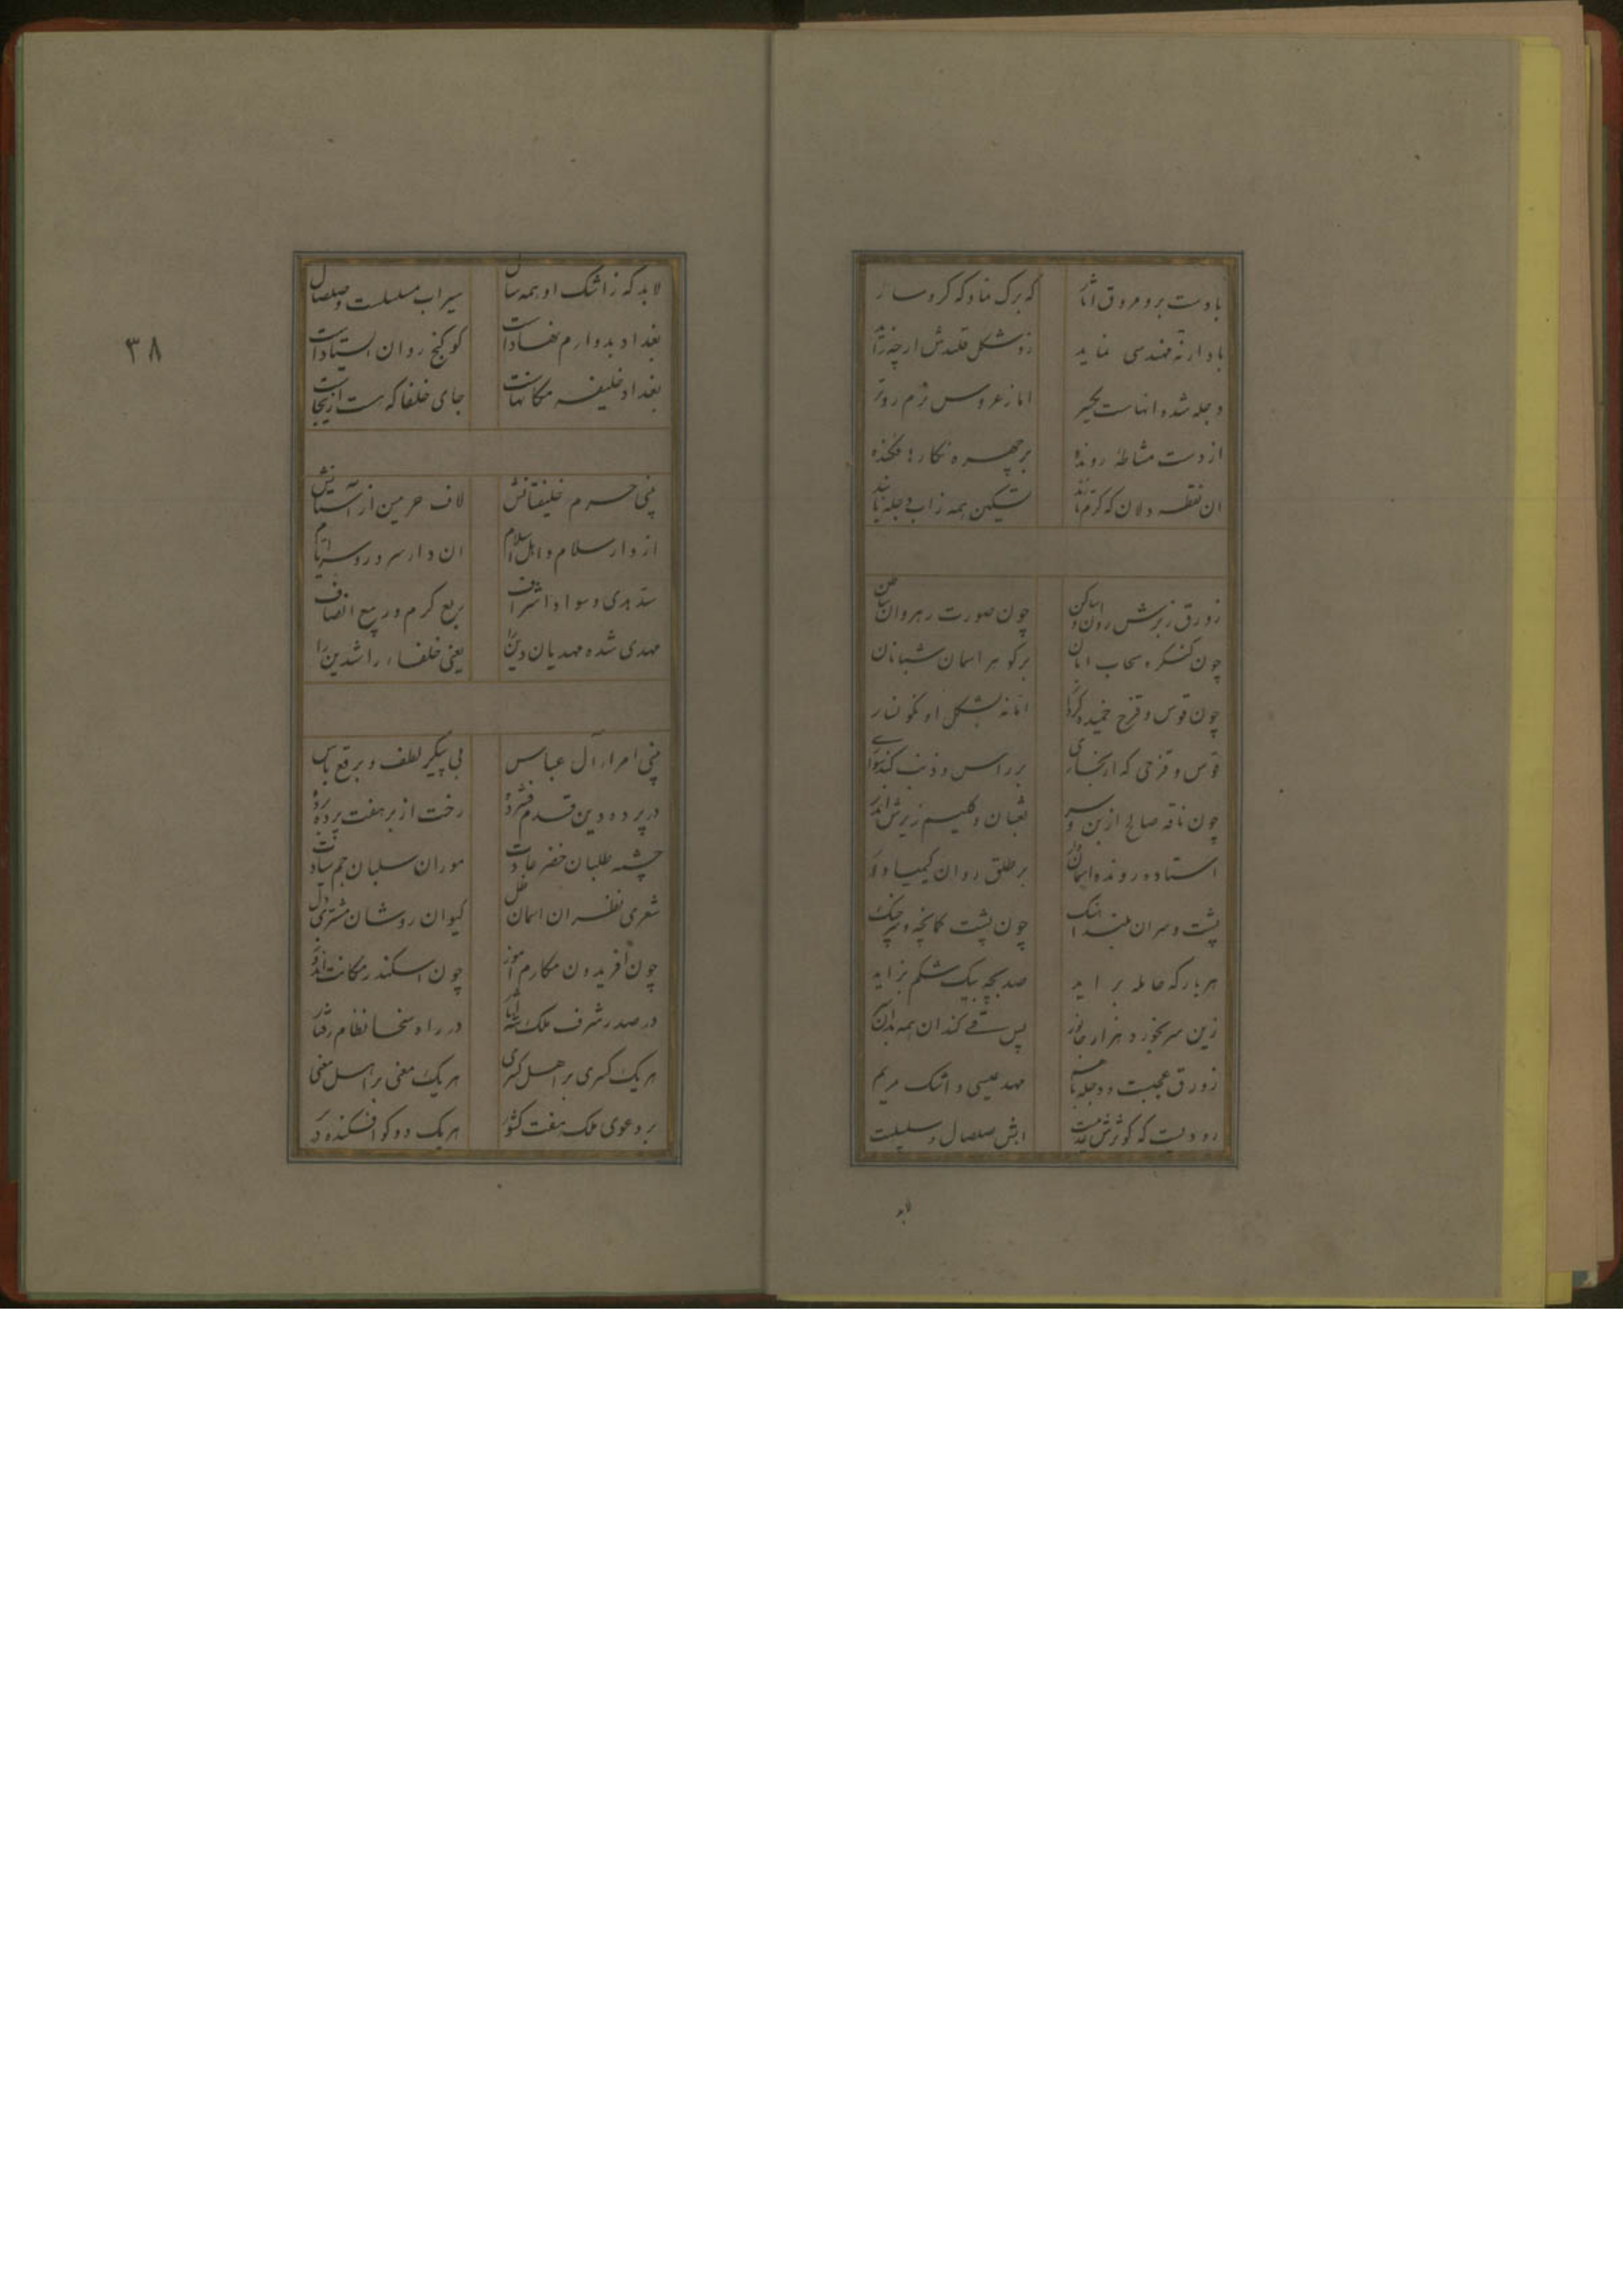 بادست برو مروق اثار که برک نماد که کروسار
بادارنه مهندسی نماید زو شکل قلیدش ارچه زاید
دجله شده انهاست بحیر اما زعروس نرم روتر
از دست مشاطه رونده بر چهره نکارها فکنده
ان نقطه دلان که کرم تابند تسکین همه زاب دجله یابند
زورق زبرش روان و ساکن چون صورت رهروان
چون کنکره سحاب ابان بر کوهر اسمان شبانان
چون قوس و قزح خمیده کردار امانه بشکل او نکونسار
قوس و قزحی که از بخاری بر راس و ذنب کند سواری
چون ناقه صالح ازبن و سر ثعبان و کلیم زیرش اندر
استاده رونده اسمان وار بر طلق روان کیمیا
پشت و سران بلند اهنک چون پشت کمانچه و سر چنک
هر بار که حامله بر اید صد بچه بیک شکم بزاید
زین سر بخورد هزار جانور پس قی کند ان همه بدان سر
زورق عجبست و دجله باهم مهد عیسی و اشک مریم
رودیست که کوثرش عدیلست ابش صلصال و سلسبیلست
لابد
٣٨
لابد که ز اشک او همه سال سیراب سلسلست و صلصال
بغداد بدو ارم نهادست کو کنج روان
بغداد خلیفه مکانهاست جای خلفا که هست ازینجاست
بینی حرم خلیفتانش لاف حرمین از استانش
از دار سلام و اهل اسلام ان دار سرور
سد هدی و سواد اشراف ربع کرم و ربیع انصاف
مهدی شده مهدیان دین را یعنی خلفاء راشدین را
بینی امراء آل عباس بی پیکر لطف و برقع باس
در پرده دین قدم فشرده رخت از بر هفت پرده برده
چشمه طلبان خضر عادت موران سلیمان جم سیادت
شعری نظران اسمان ظل کیوان روشان مشتری دل
چون آفریدون مکارم اموز چون اسکندر مکانت اندوز
در صدر شرف ملک شه اثار در راه سخا نظام رفتار
هر یک کسری بر اهل کسری هر یک معنی بر اهل معنی
بر دعوی ملک هفت کشور هر یک دو کوا فکنده در